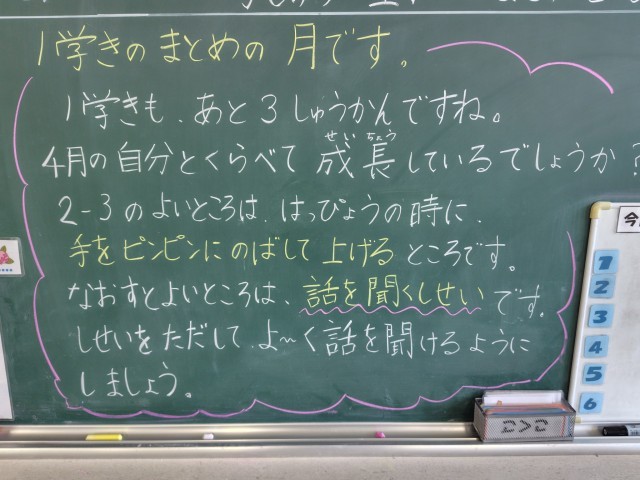 1学きのまとめの月です。
1学きも、あと3しゅうかんですね。
4月の自分とくらべて成長しているでしょうか?
せい ちょう
2-3のよいところは、はっぴょうの時に、
手をピンピンにのばして上げるところです。
なおすとよいところは、話を聞くしせいです。
しせいをただして、よ〜く話を聞けるように
しましょう。
今
1
2
3
4
5
6